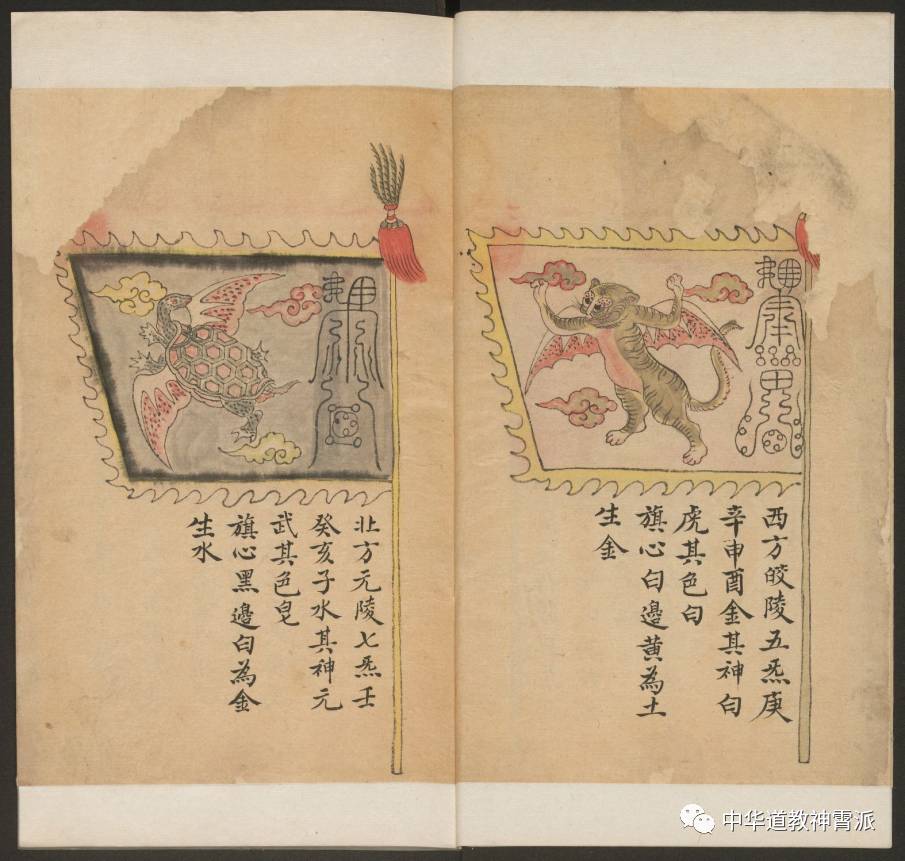 西方皎陵五炁庚
辛申酉金其神白
虎其色白
旗心白邊黃為土
生金
北方元陵七炁壬
癸亥子水其神元
武其色皂
旗心黑邊白為金
生水
中华道教神霄派